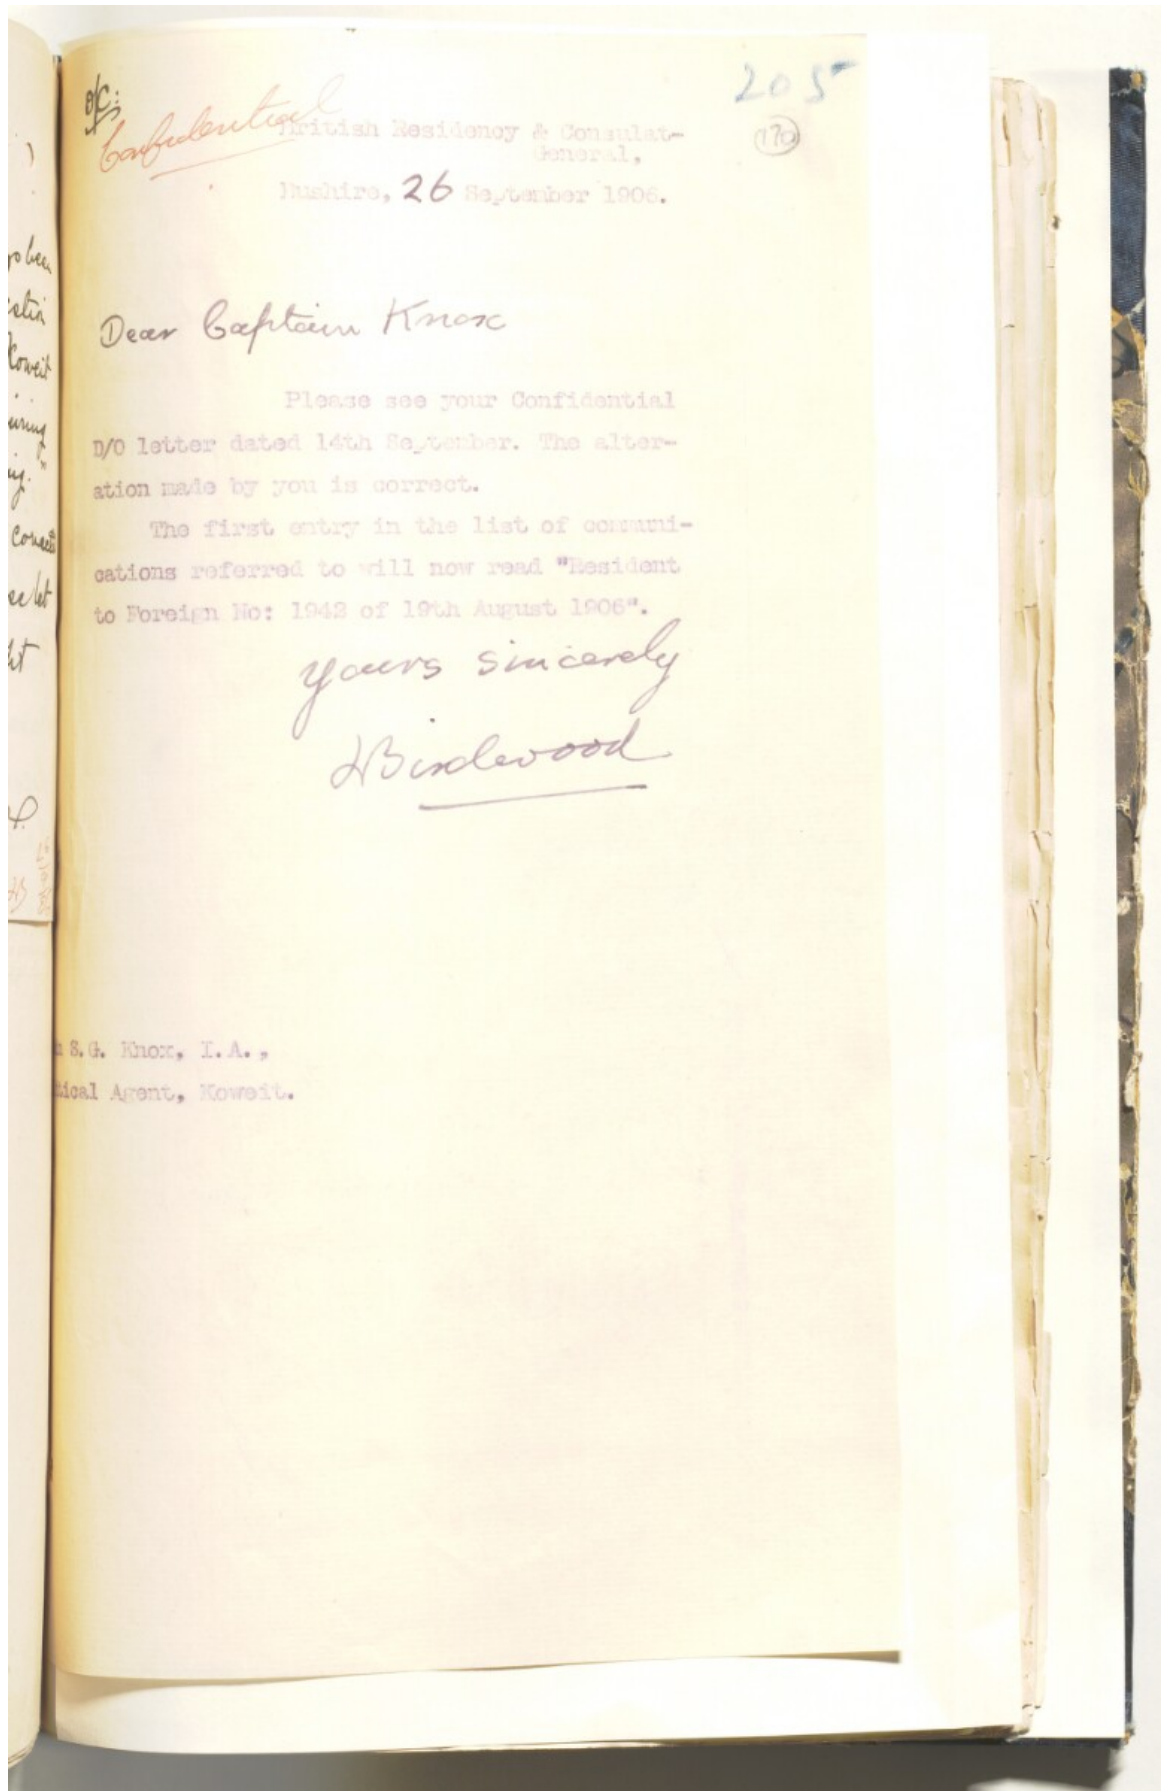 205
170
Confidential
British Residency & Consulat-
General,
Bushire, 26 September 1906.
Dear Captain Knox
Please see your Confidential
D/O letter dated 14th September. The alter-
ation made by you is correct.
The first entry in the list of communi-
cations referred to will now read "Resident
to Foreign No: 1942 of 19th August 1906".
Yours sincerely
Birdwood
S.G. Knox, I.A.,
tical Agent, Koweit.
Koweit